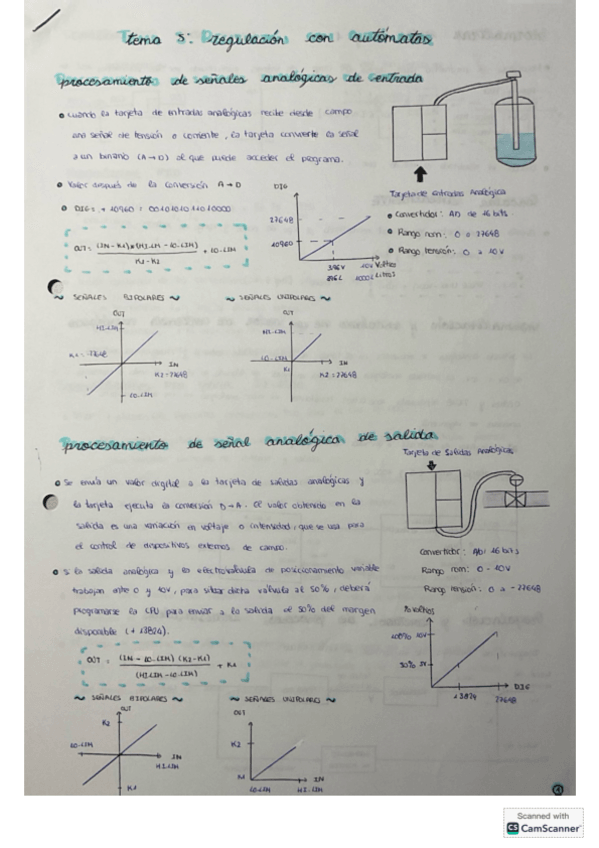 tema 5: regulación con autómatas
procesamiento de señales analógicas de entrada
• cuando la tarjeta de entradas analógicas recibe desde campo
una señal de tensión o corriente, la tarjeta convierte la señal
a un binario (A→D) al que puede acceder el programa.
• Valor después de la conversión A→D
• DIG: + 10960 = 0010101011010000
OUT = (IN - K1)*(HI-LIM - LO-LIM) / K2 - K1 + LO-LIM
DIG
27648
10960
3.96V
10V Voltios
396L
1000L Litros
Tarjeta de entradas Analógica
• Convertidor: AD de 16 bits
• Rango nom: 0 a 27648
• Rango tensión: 0 a 10V
~ SEÑALES BIPOLARES ~
OUT
HI-LIM
K1 = -27648
IN
K2 = 27648
LO-LIM
~ SEÑALES UNIPOLARES ~
OUT
HI-LIM
LO-LIM
K1
IN
K2 = 27648
procesamiento de señal analógica de salida
Tarjeta de Salidas Analógicas
• Se envía un valor digital a la tarjeta de salidas analógicas y
la tarjeta ejecuta la conversión D→A. El valor obtenido en la
salida es una variación en voltaje o intensidad, que se usa para
el control de dispositivos externos de campo.
• Si la salida analógica y la electroválvula de posicionamiento variable
trabajan entre 0 y 10V, para situar dicha válvula al 50%, deberá
programarse la CPU para enviar a la salida el 50% del margen
disponible (+ 13824).
Convertidor: AD: 16 bits
Rango nom: 0 - 10V
Rango tensión: 0 a - 27648
OUT = (IN - LO-LIM) (K2-K1) / (HI-LIM - LO-LIM) + K1
% Voltios
100% 10V
50% 5V
DIG
13824
27648
~ SEÑALES BIPOLARES ~
OUT
K2
LO-LIM
IN
HI-LIM
K1
~ SEÑALES UNIPOLARES ~
OUT
K2
K1
IN
LO-LIM
HI-LIM
Scanned with
CS CamScanner